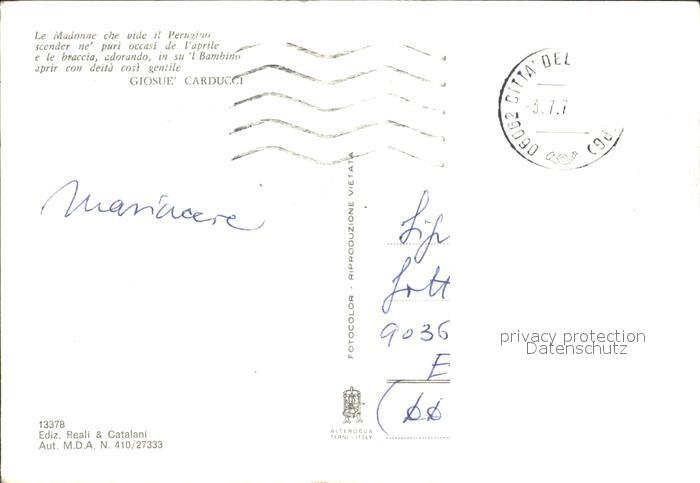 Le Madonne che vide il Perugino
scender ne' puri occasi de l'aprile
e le braccia, adorando, in su 'l Bambino
aprir con deità così gentile
GIOSUE' CARDUCCI
06062 CITTA' DEL
-3.7.7
(PG)
FOTOCOLOR - RIPRODUZIONE VIETATA
9036
privacy protection
Datenschutz
ALTEROCCA
TERNI - ITALY
13378
Ediz. Reali & Catalani
Aut. M.D.A. N. 410/27333